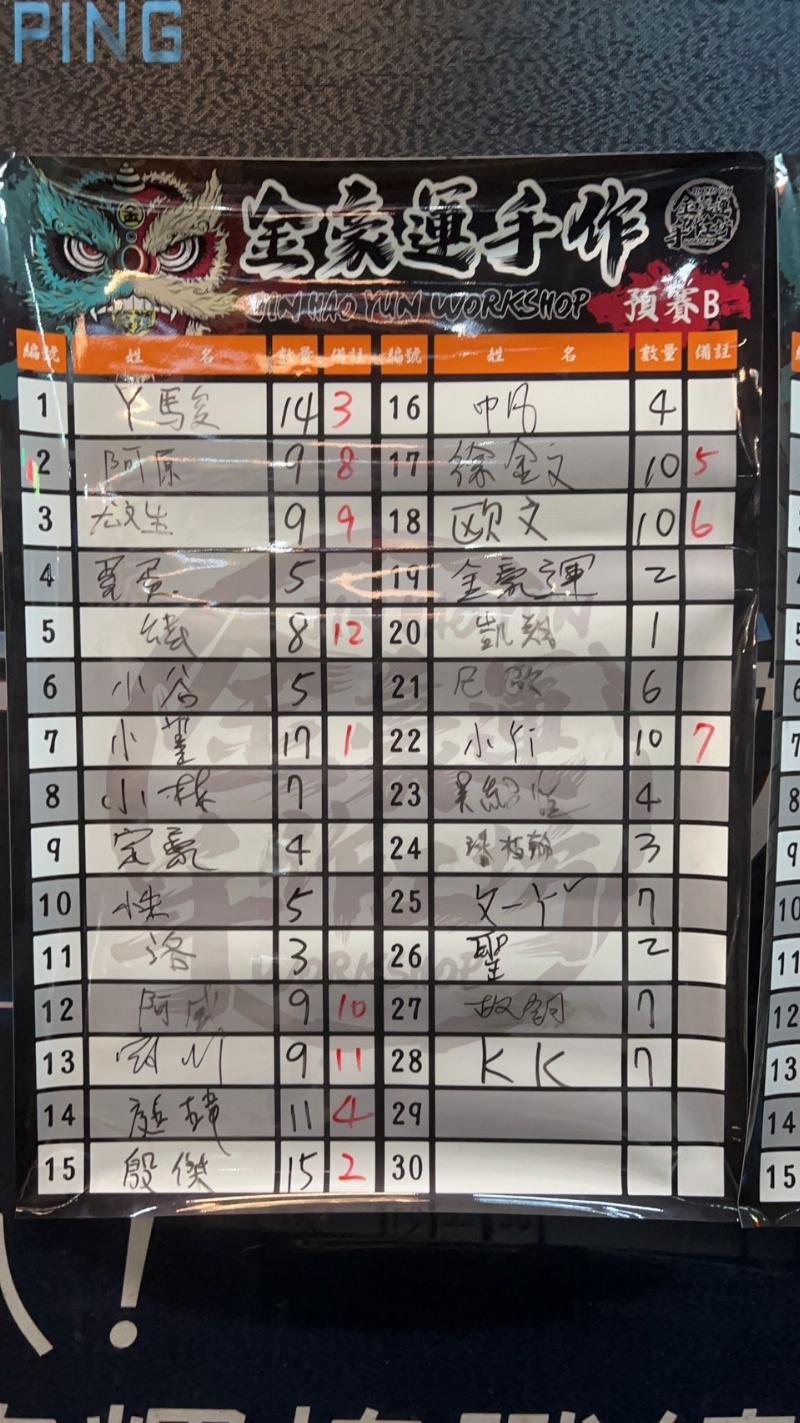 PING
金豪運手作
JIN HAO YUN WORKSHOP
預賽B
編號 姓名 數量 備註 編號 姓名 數量 備註
1 丫駿 14 3 16 4
2 阿原 9 8 17 徐金文 10 5
3 尤文生 9 9 18 欧文 10 6
4 5 19 金豪運 2
5 8 12 20 凱翔 1
6 小谷 5 21 尼歐 6
7 小董 17 1 22 小竹 10 7
8 小林 7 23 4
9 定豪 4 24 3
10 5 25 7
11 洛 3 26 聖 2
12 阿威 9 10 27 7
13 9 11 28 KK 7
14 11 4 29
15 殷傑 15 2 30